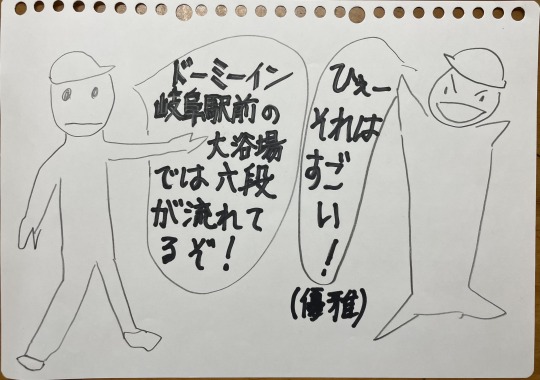 ドーミーイン
岐阜駅前の
大浴場
では六段
が流れて
るぞ!
ひえー
それは
すご
い!
(優雅)